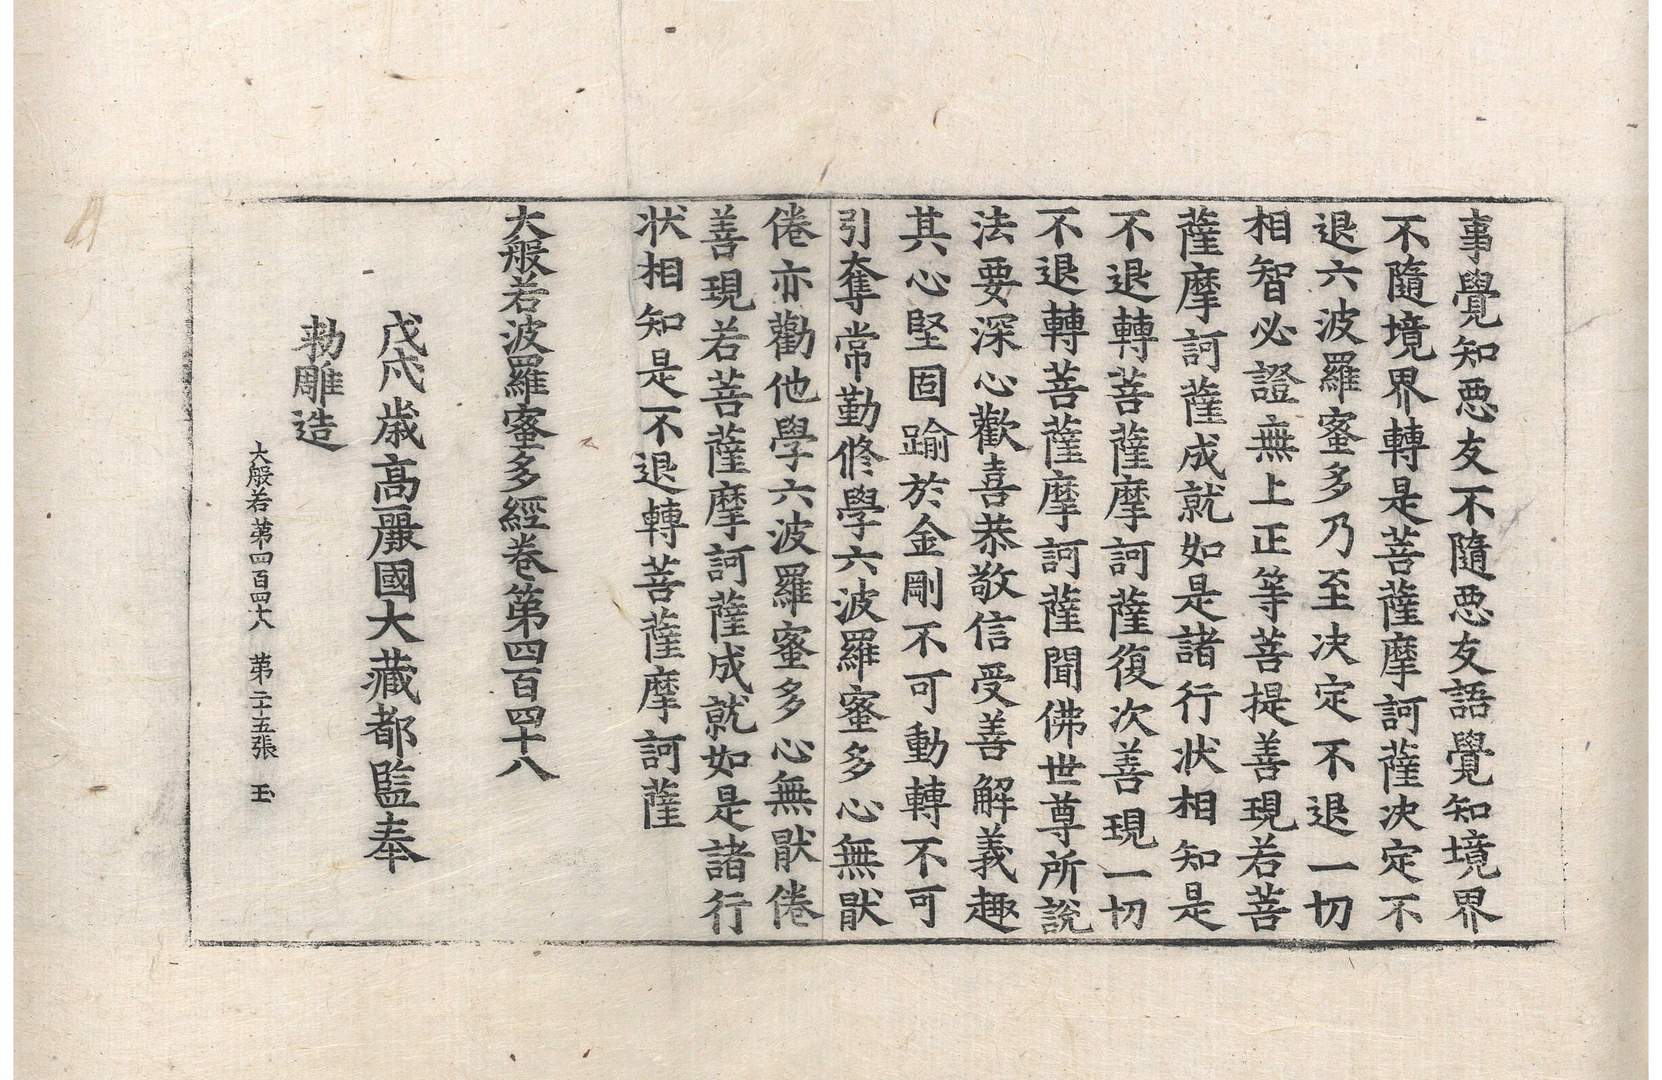 事覺知惡友不隨惡友語覺知境界
不隨境界轉是菩薩摩訶薩决定不
退六波羅蜜多乃至决定不退一切
相智必證無上正等菩提善現若菩
薩摩訶薩成就如是諸行狀相知是
不退轉菩薩摩訶薩復次善現一切
不退轉菩薩摩訶薩聞佛世尊所說
法要深心歡喜恭敬信受善解義趣
其心堅固踰於金剛不可動轉不可
引奪常勤修學六波羅蜜多心無猒
倦亦勸他學六波羅蜜多心無猒倦
善現若菩薩摩訶薩成就如是諸行
狀相知是不退轉菩薩摩訶薩
大般若波羅蜜多經卷第四百四十八
戊戌歲高麗國大藏都監奉
勑雕造
大般若第四百四十八 第二十五張 玉